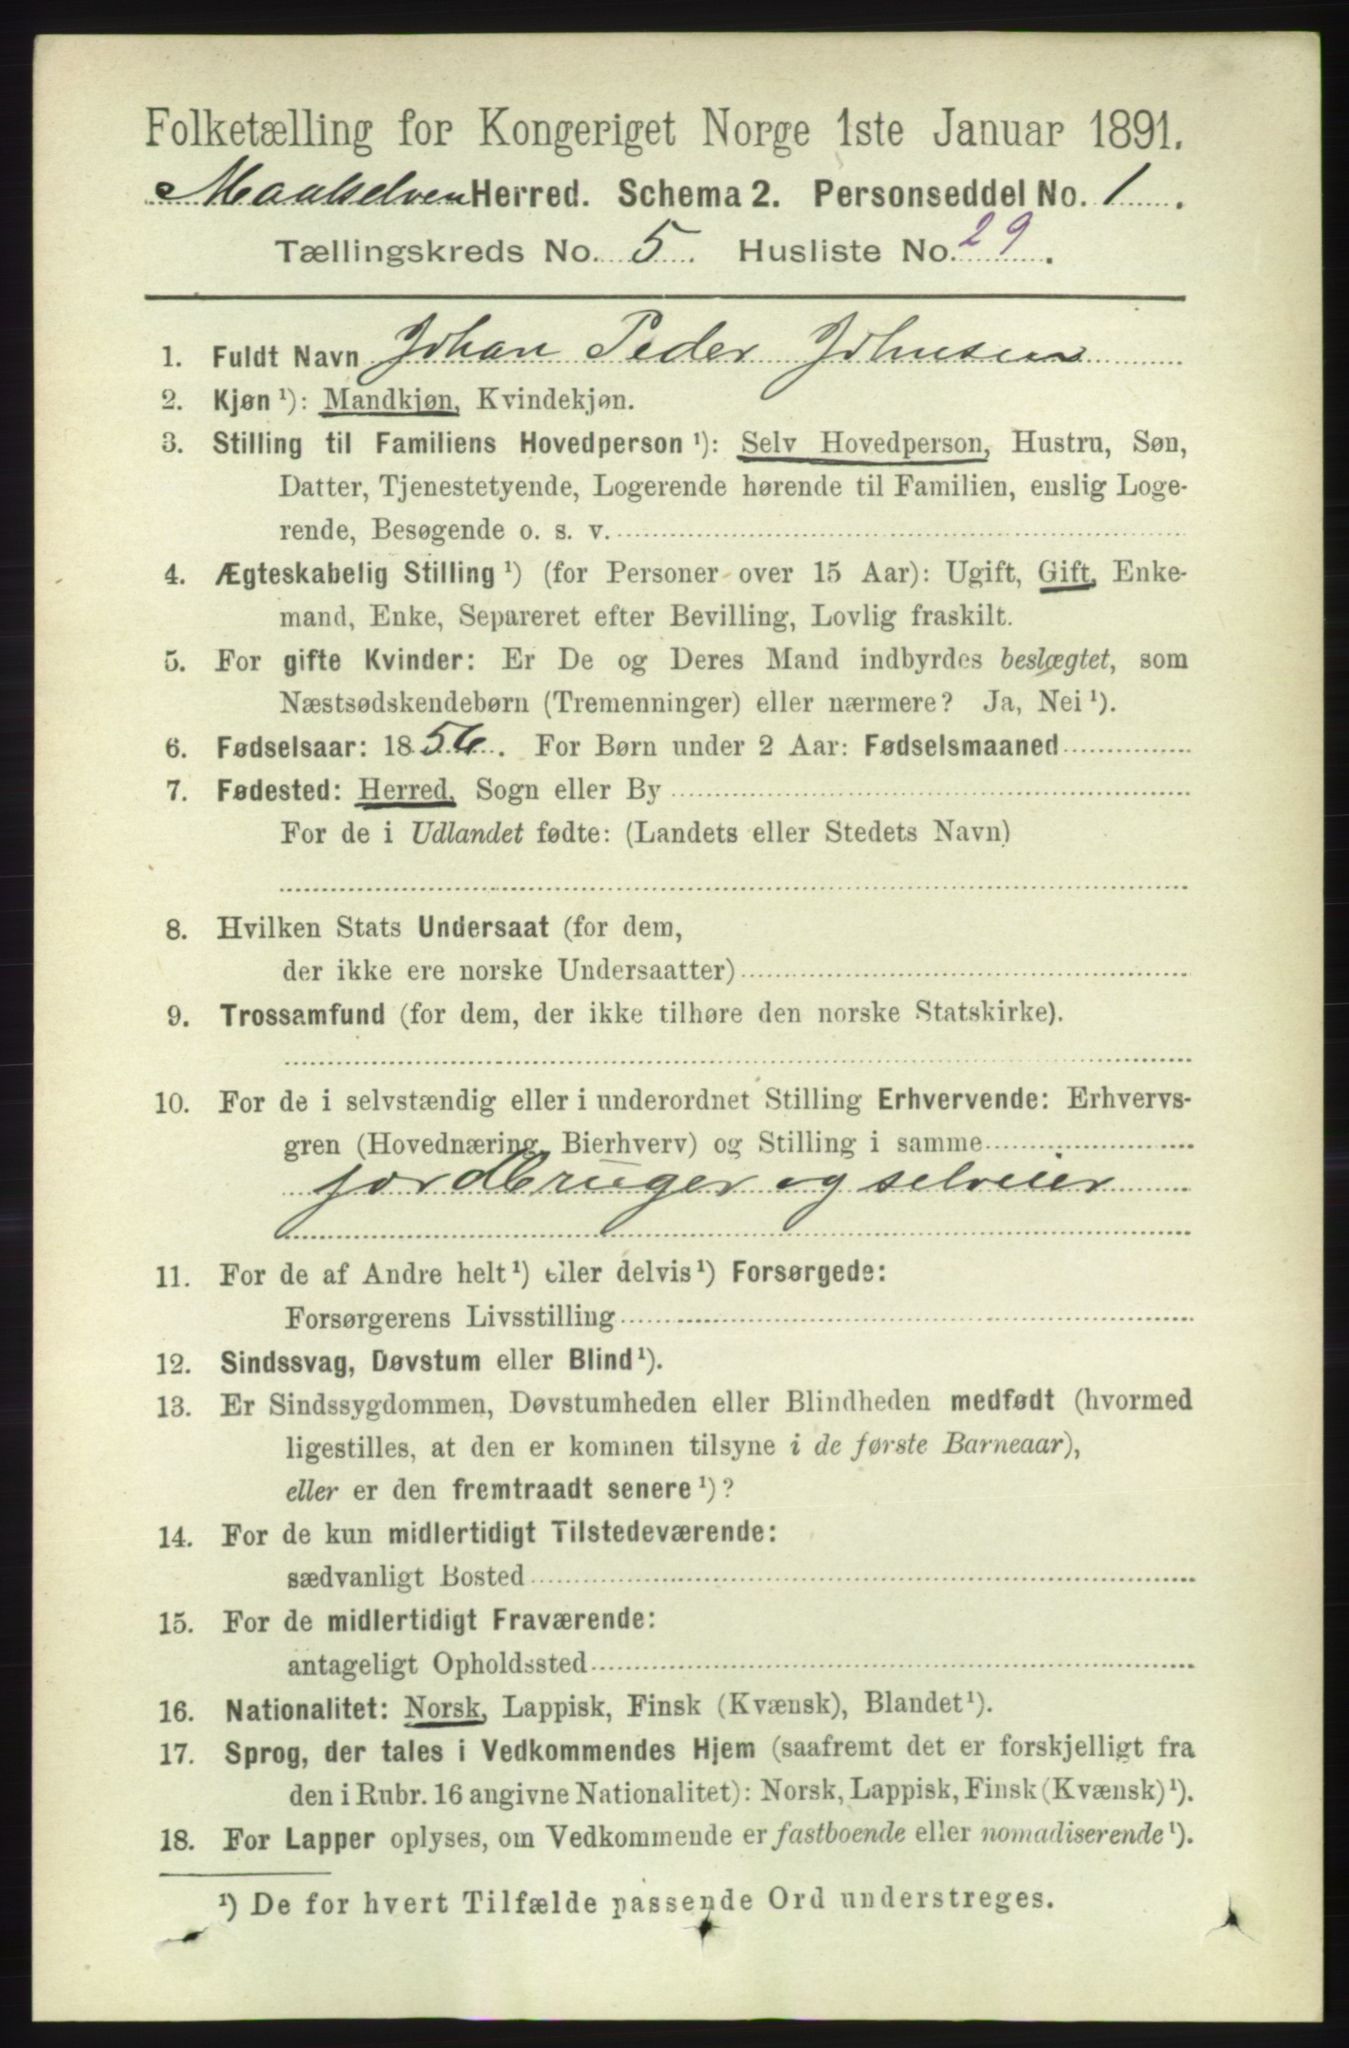 Folketælling for Kongeriget Norge 1ste Januar 1891.
Maalselven Herred. Schema 2. Personseddel No. 1.
Tællingskreds No. 5. Husliste No. 29.
1. Fuldt Navn Johan Peder Johnsen
2. Kjøn ¹): Mandkjøn, Kvindekjøn.
3. Stilling til Familiens Hovedperson ¹): Selv Hovedperson, Hustru, Søn,
Datter, Tjenestetyende, Logerende hørende til Familien, enslig Loge-
rende, Besøgende o. s. v.
4. Ægteskabelig Stilling ¹) (for Personer over 15 Aar): Ugift, Gift, Enke-
mand, Enke, Separeret efter Bevilling, Lovlig fraskilt.
5. For gifte Kvinder: Er De og Deres Mand indbyrdes beslægtet, som
Næstsødskendebørn (Tremenninger) eller nærmere? Ja, Nei ¹).
6. Fødselsaar: 1856. For Børn under 2 Aar: Fødselsmaaned
7. Fødested: Herred, Sogn eller By
For de i Udlandet fødte: (Landets eller Stedets Navn)
8. Hvilken Stats Undersaat (for dem,
der ikke ere norske Undersaatter)
9. Trossamfund (for dem, der ikke tilhøre den norske Statskirke).
10. For de i selvstændig eller i underordnet Stilling Erhvervende: Erhvervs-
gren (Hovednæring, Bierhverv) og Stilling i samme
jordbruger og selveier
11. For de af Andre helt ¹) eller delvis ¹) Forsørgede:
Forsørgerens Livsstilling
12. Sindssvag, Døvstum eller Blind ¹).
13. Er Sindssygdommen, Døvstumheden eller Blindheden medfødt (hvormed
ligestilles, at den er kommen tilsyne i de første Barneaar),
eller er den fremtraadt senere ¹)?
14. For de kun midlertidigt Tilstedeværende:
sædvanligt Bosted
15. For de midlertidigt Fraværende:
antageligt Opholdssted
16. Nationalitet: Norsk, Lappisk, Finsk (Kvænsk), Blandet ¹).
17. Sprog, der tales i Vedkommendes Hjem (saafremt det er forskjelligt fra
den i Rubr. 16 angivne Nationalitet): Norsk, Lappisk, Finsk (Kvænsk) ¹).
18. For Lapper oplyses, om Vedkommende er fastboende eller nomadiserende ¹).
¹) De for hvert Tilfælde passende Ord understreges.